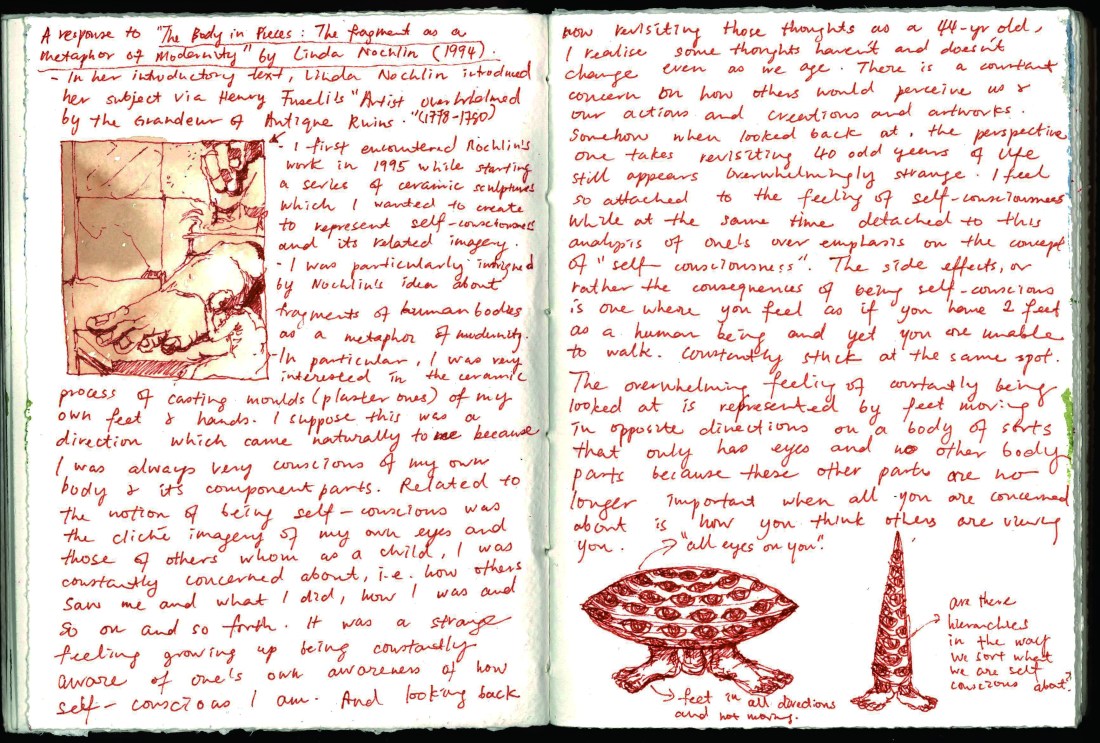 A response to "The Body in Pieces: The fragment as a
metaphor of modernity" by Linda Nochlin (1994).
- In her introductory text, Linda Nochlin introduced
her subject via Henry Fuseli's "Artist overwhelmed
by the Grandeur of Antique Ruins." (1778-1780)
- I first encountered Nochlin's
work in 1995 while starting
a series of ceramic sculptures
which I wanted to create
to represent self-consciousness
and its related imagery.
- I was particularly intrigued
by Nochlin's idea about
fragments of human bodies
as a metaphor of modernity.
In particular, I was very
interested in the ceramic
process of casting moulds (plaster ones) of my
own feet & hands. I suppose this was a
direction which came naturally to me because
I was always very conscious of my own
body & its component parts. Related to
the notion of being self-conscious was
the cliché imagery of my own eyes and
those of others whom as a child, I was
constantly concerned about, i.e. how others
saw me and what I did, how I was and
so on and so forth. It was a strange
feeling growing up being constantly
aware of one's own awareness of how
self-conscious I am. And looking back
now revisiting those thoughts as a 44-yr old,
I realise some thoughts haven't and doesn't
change even as we age. There is a constant
concern on how others would perceive us &
our actions and creations and artworks.
Somehow when looked back at, the perspective
one takes revisiting 40 odd years of life
still appears overwhelmingly strange. I feel
so attached to the feeling of self-consciousness
while at the same time detached to this
analysis of one's over emphasis on the concept
of "self-consciousness". The side effects, or
rather the consequences of being self-conscious
is one where you feel as if you have 2 feet
as a human being and yet you are unable
to walk. Constantly stuck at the same spot.
The overwhelming feeling of constantly being
looked at is represented by feet moving
in opposite directions on a body of sorts
that only has eyes and no other body
parts because these other parts are no
longer important when all you are concerned
about is how you think others are viewing
you.
"all eyes on you".
feet in all directions
and not moving.
are there
hierarchies
in the way
we sort what
we are self
conscious about?